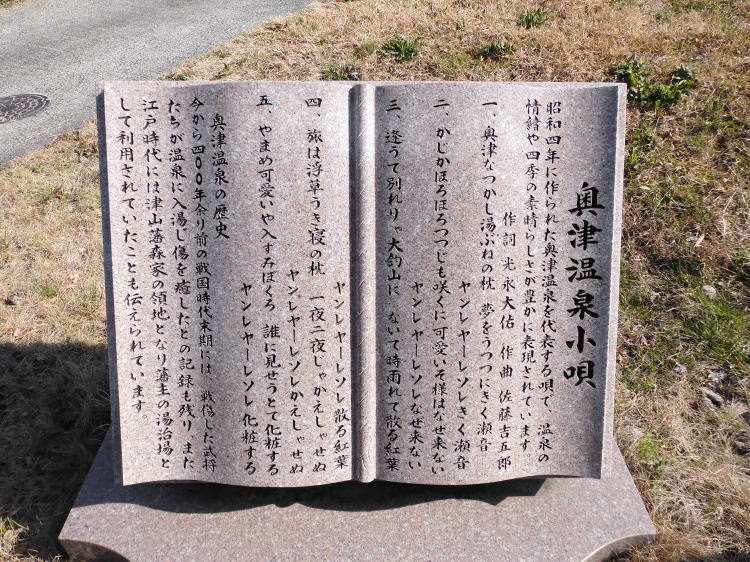 奥津温泉小唄
昭和四年に作られた奥津温泉を代表する唄で、温泉の
情緒や四季の素晴らしさが豊かに表現されています
作詞 光永大佑 作曲 佐藤吉五郎
一、奥津なつかし湯ぶねの枕 夢をうつつにきく瀬音
ヤンレヤーレソレきく瀬音
二、かじかほろほろつつじも咲くに可愛いそ様はなぜ来ない
ヤンレヤーレソレなぜ来ない
三、逢うて別れりゃ大釣山に ないて時雨れて散る紅葉
ヤンレヤーレソレ散る紅葉
四、旅は浮草うき寝の枕 一夜二夜じゃかえしゃせぬ
ヤンレヤーレソレかえしゃせぬ
五、やまめ可愛いや入すみぼくろ 誰に見せうとて化粧する
ヤンレヤーレソレ化粧する
奥津温泉の歴史
今から四〇〇年余り前の戦国時代末期には、戦傷した武将
たちが温泉に入湯し傷を癒したとの記録も残り、また
江戸時代には津山藩森家の領地となり藩主の湯治場と
して利用されていたことも伝えられています